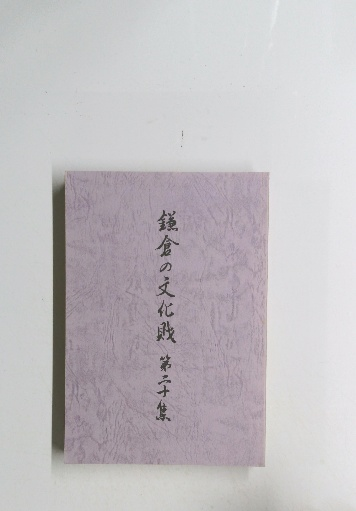 鎌倉の文化財 第二十集